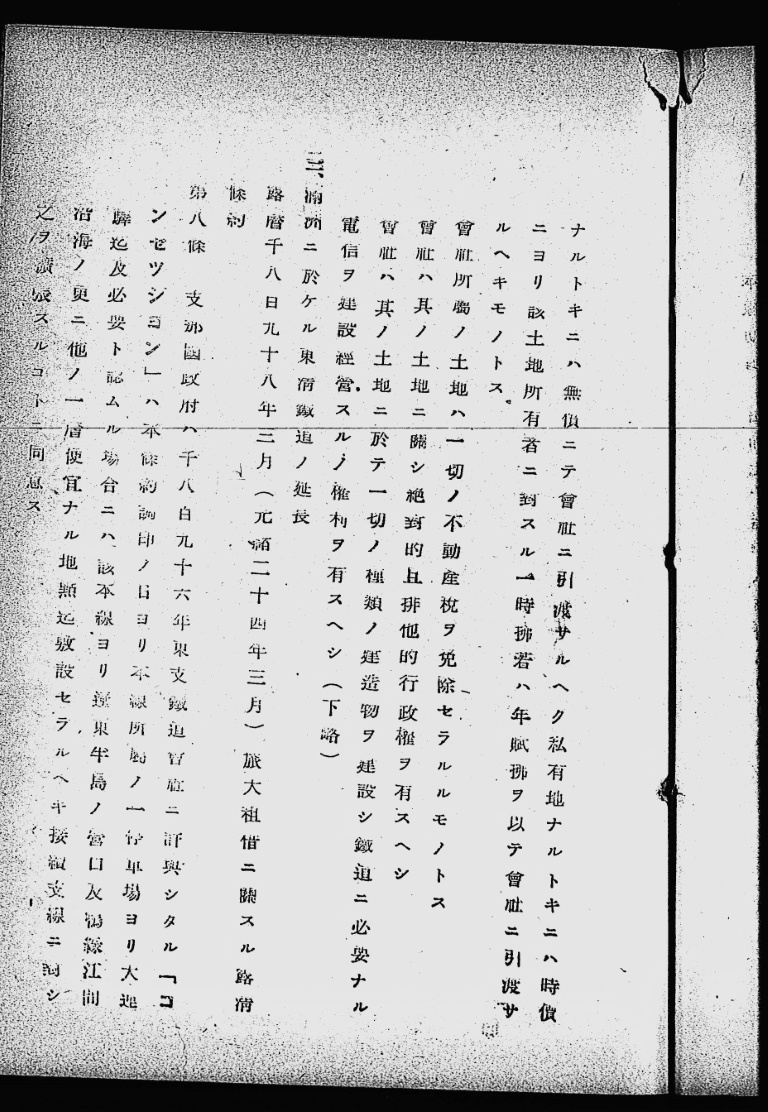 ナルトキニハ無償ニテ會社ニ引渡サルヘク私有地ナルトキニハ時價
ニヨリ該土地所有者ニ對スル一時拂若ハ年賦拂ヲ以テ會社ニ引渡サ
ルヘキモノトス。
會社所屬ノ土地ハ一切ノ不動產稅ヲ免除セラルルモノトス
會社ハ其ノ土地ニ關シ絕對的且排他的行政權ヲ有スヘシ
會社ハ其ノ土地ニ於テ一切ノ種類ノ建造物ヲ建設シ鐵道ニ必要ナル
電信ヲ建設經營スルノ權利ヲ有スヘシ(下略)
三、滿洲ニ於ケル東淸鐵道ノ延長
露曆千八百九十八年三月(光緖二十四年三月)旅大租借ニ關スル露淸
條約
第八條 支那國政府ハ千八百九十六年東支鐵道會社ニ許與シタル「コ
ンセツシヨン」ハ本條約調印ノ日ヨリ本線所屬ノ一停車場ヨリ大連
驛迄及必要ト認ムル場合ニハ該本線ヨリ遼東半島ノ營口及鴨綠江間
沿海ノ更ニ他ノ一層便宜ナル地點迄敷設セラルヘキ接續支線ニ對シ
之ヲ擴張スルコトニ同意ス